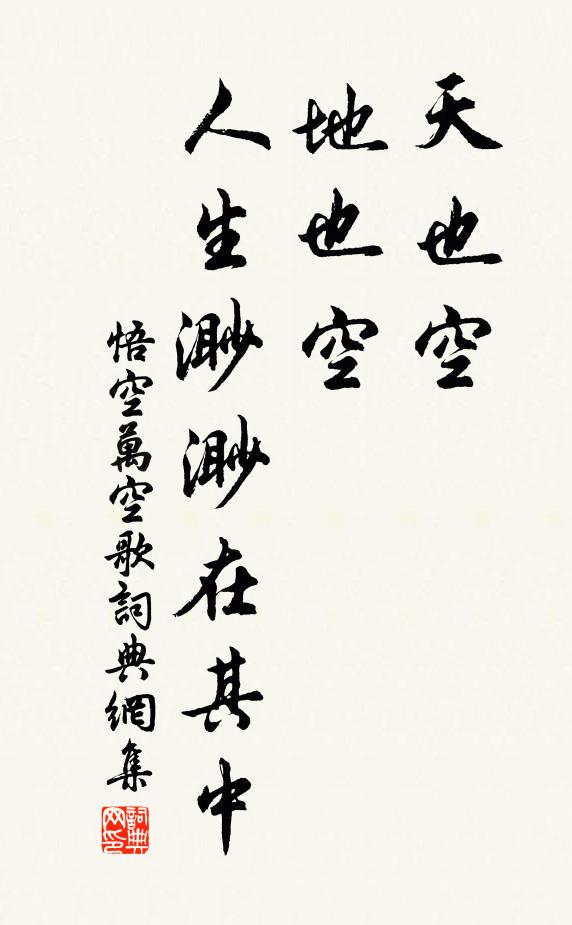 天也空
地也空
人生渺渺在其中
悟空萬空歌詞典網集
詞典网印